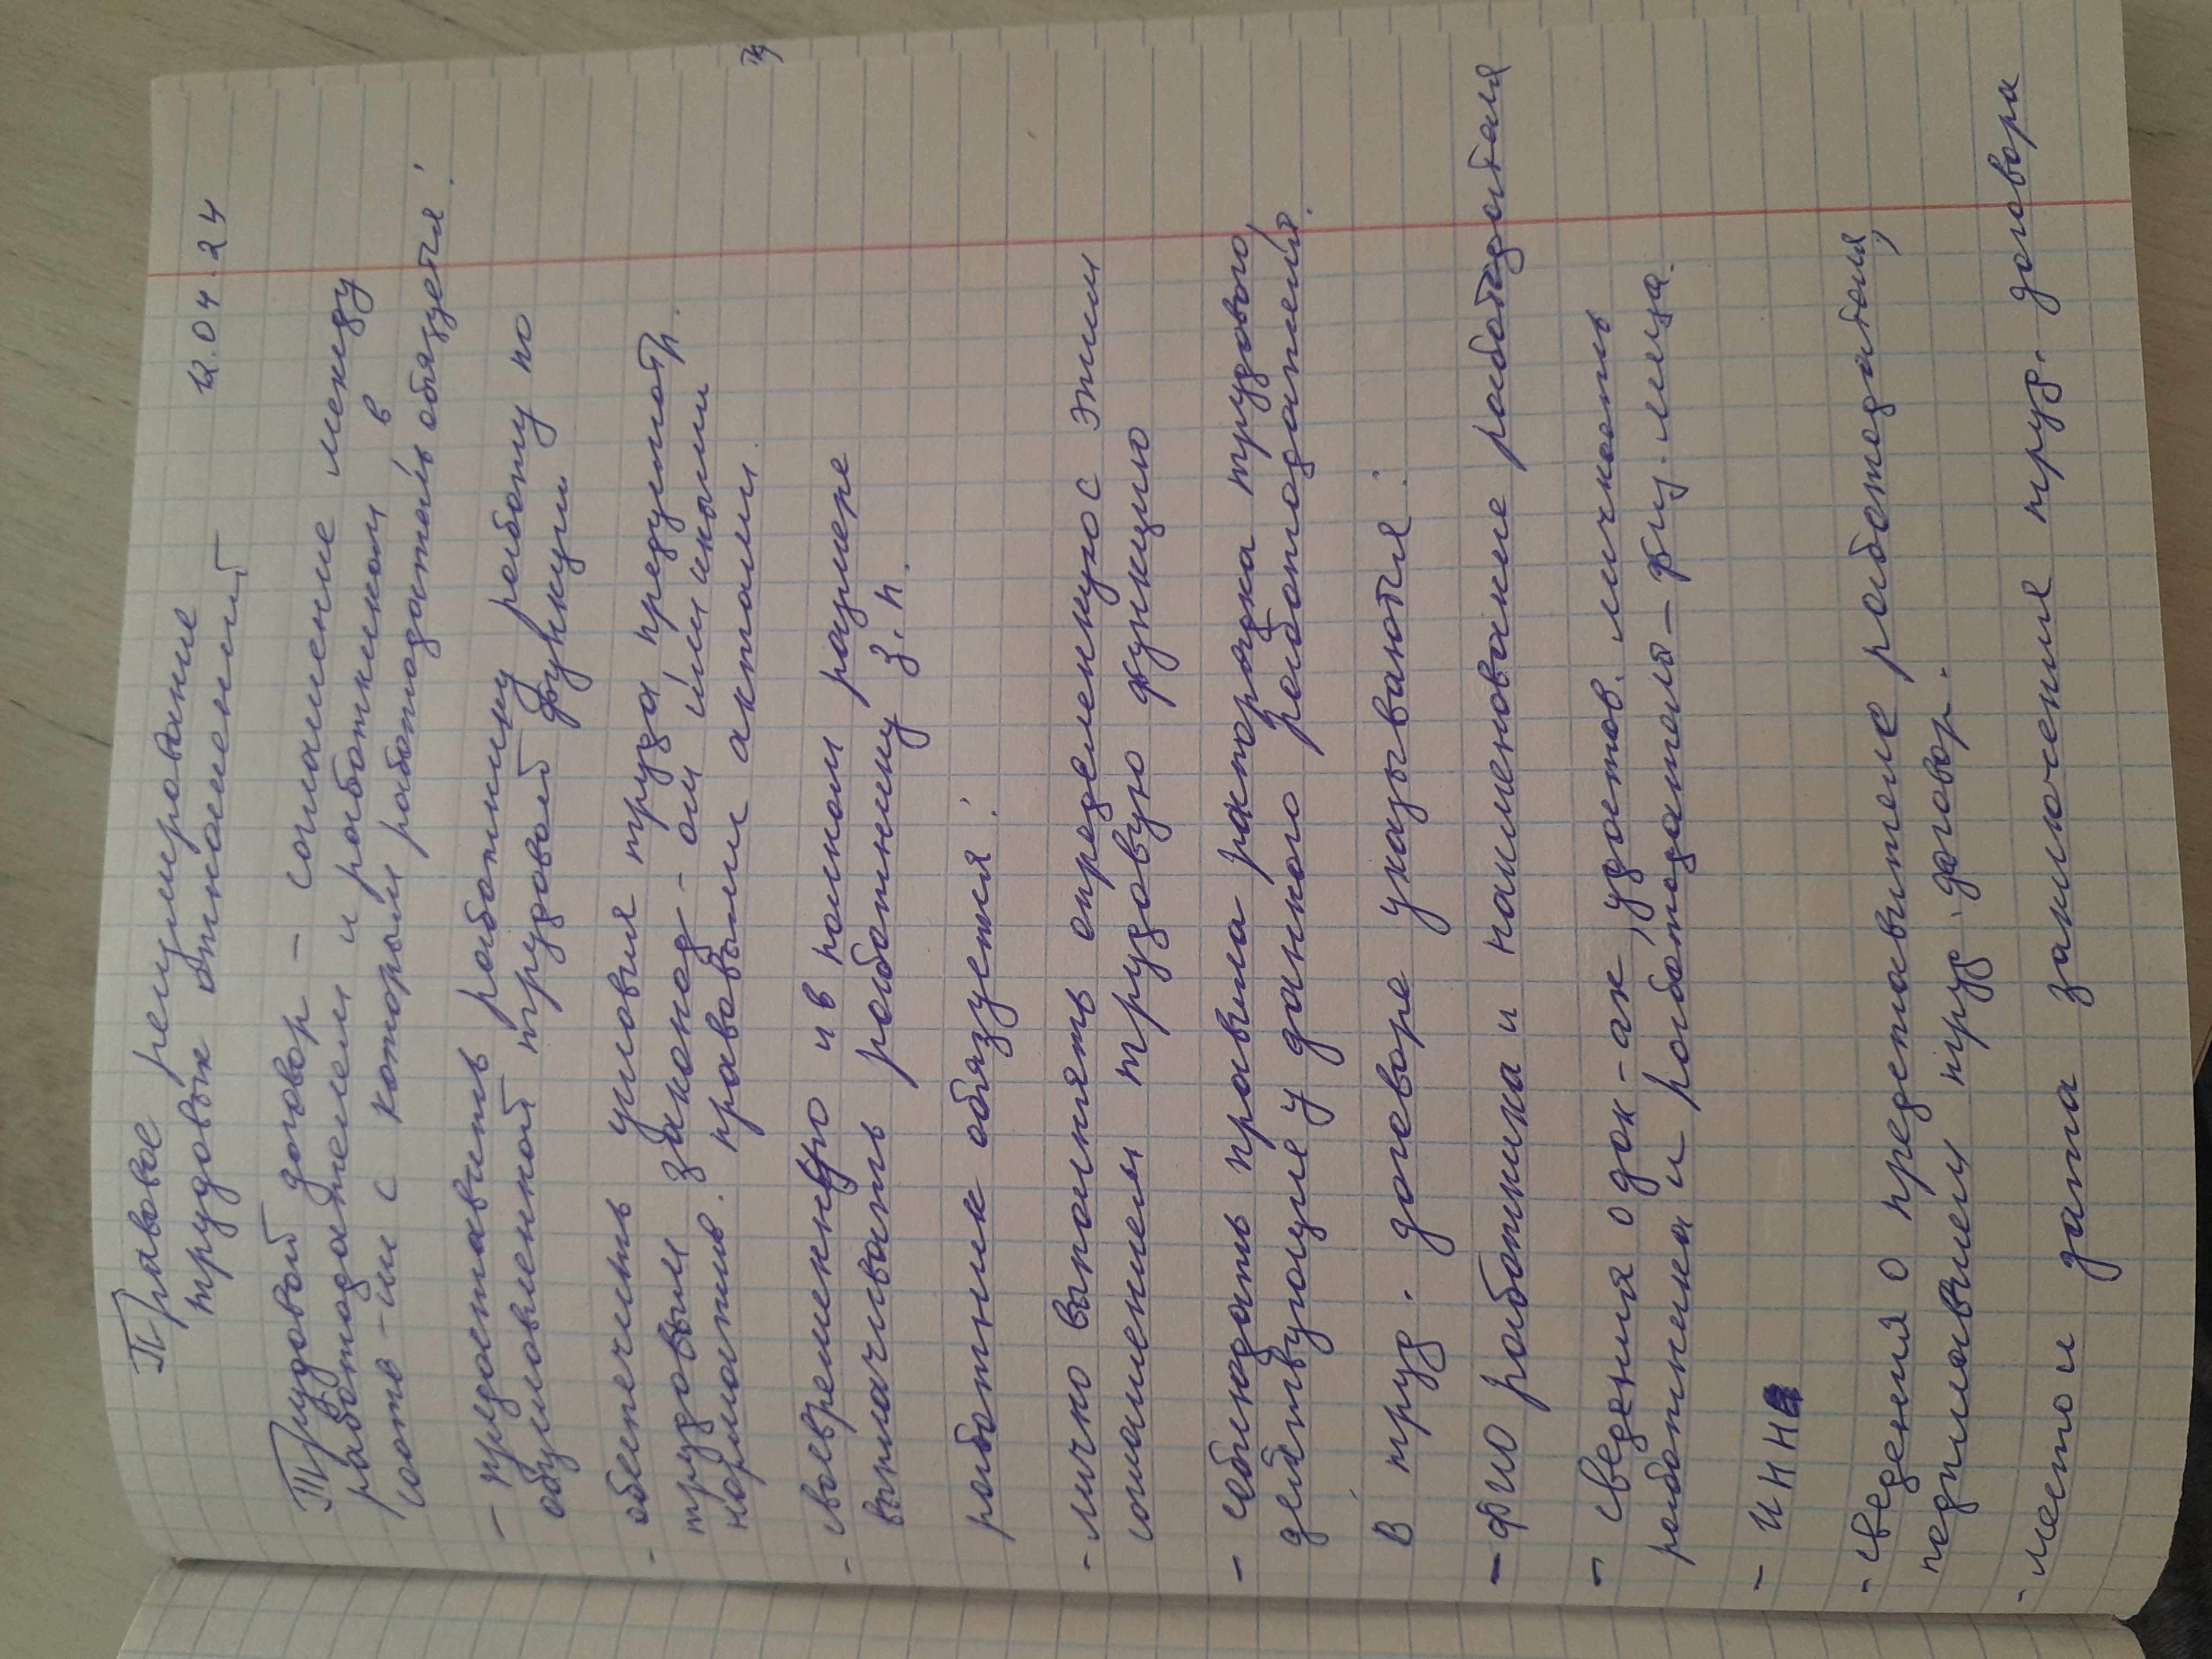 12.04.24
Правовое регулирование
трудовых отношений
Трудовой договор – соглашение между
работодателем и работником в
соотв-ии с которым работодатель обязуется:
- предоставить работнику работу по
обусловленной трудовой функции
- обеспечить условия труда предусмотр.
трудовым законод-ом или иными
нормотив. правовыми актами.
- своевременно и в полном размере
выплачивать работнику з.п.
работник обязуется:
- лично выполнять определенную с этим
соглашением трудовую функцию
- соблюдать правила распорядка трудового,
действующие у данного работодателя.
В труд. договоре указываются:
- ФИО работника и наименование работодателя
- сведения о док-ах, удостов. личность
работника и работодателя – физ. лица.
- ИНН
- сведения о представителе работодателя,
подписавшем труд. договор.
- место и дата заключения труд. договора